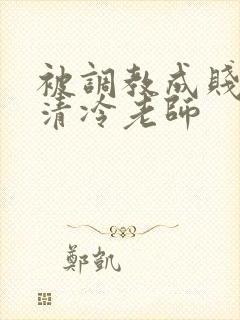 被調教成賤
清冷老師
鄭凱